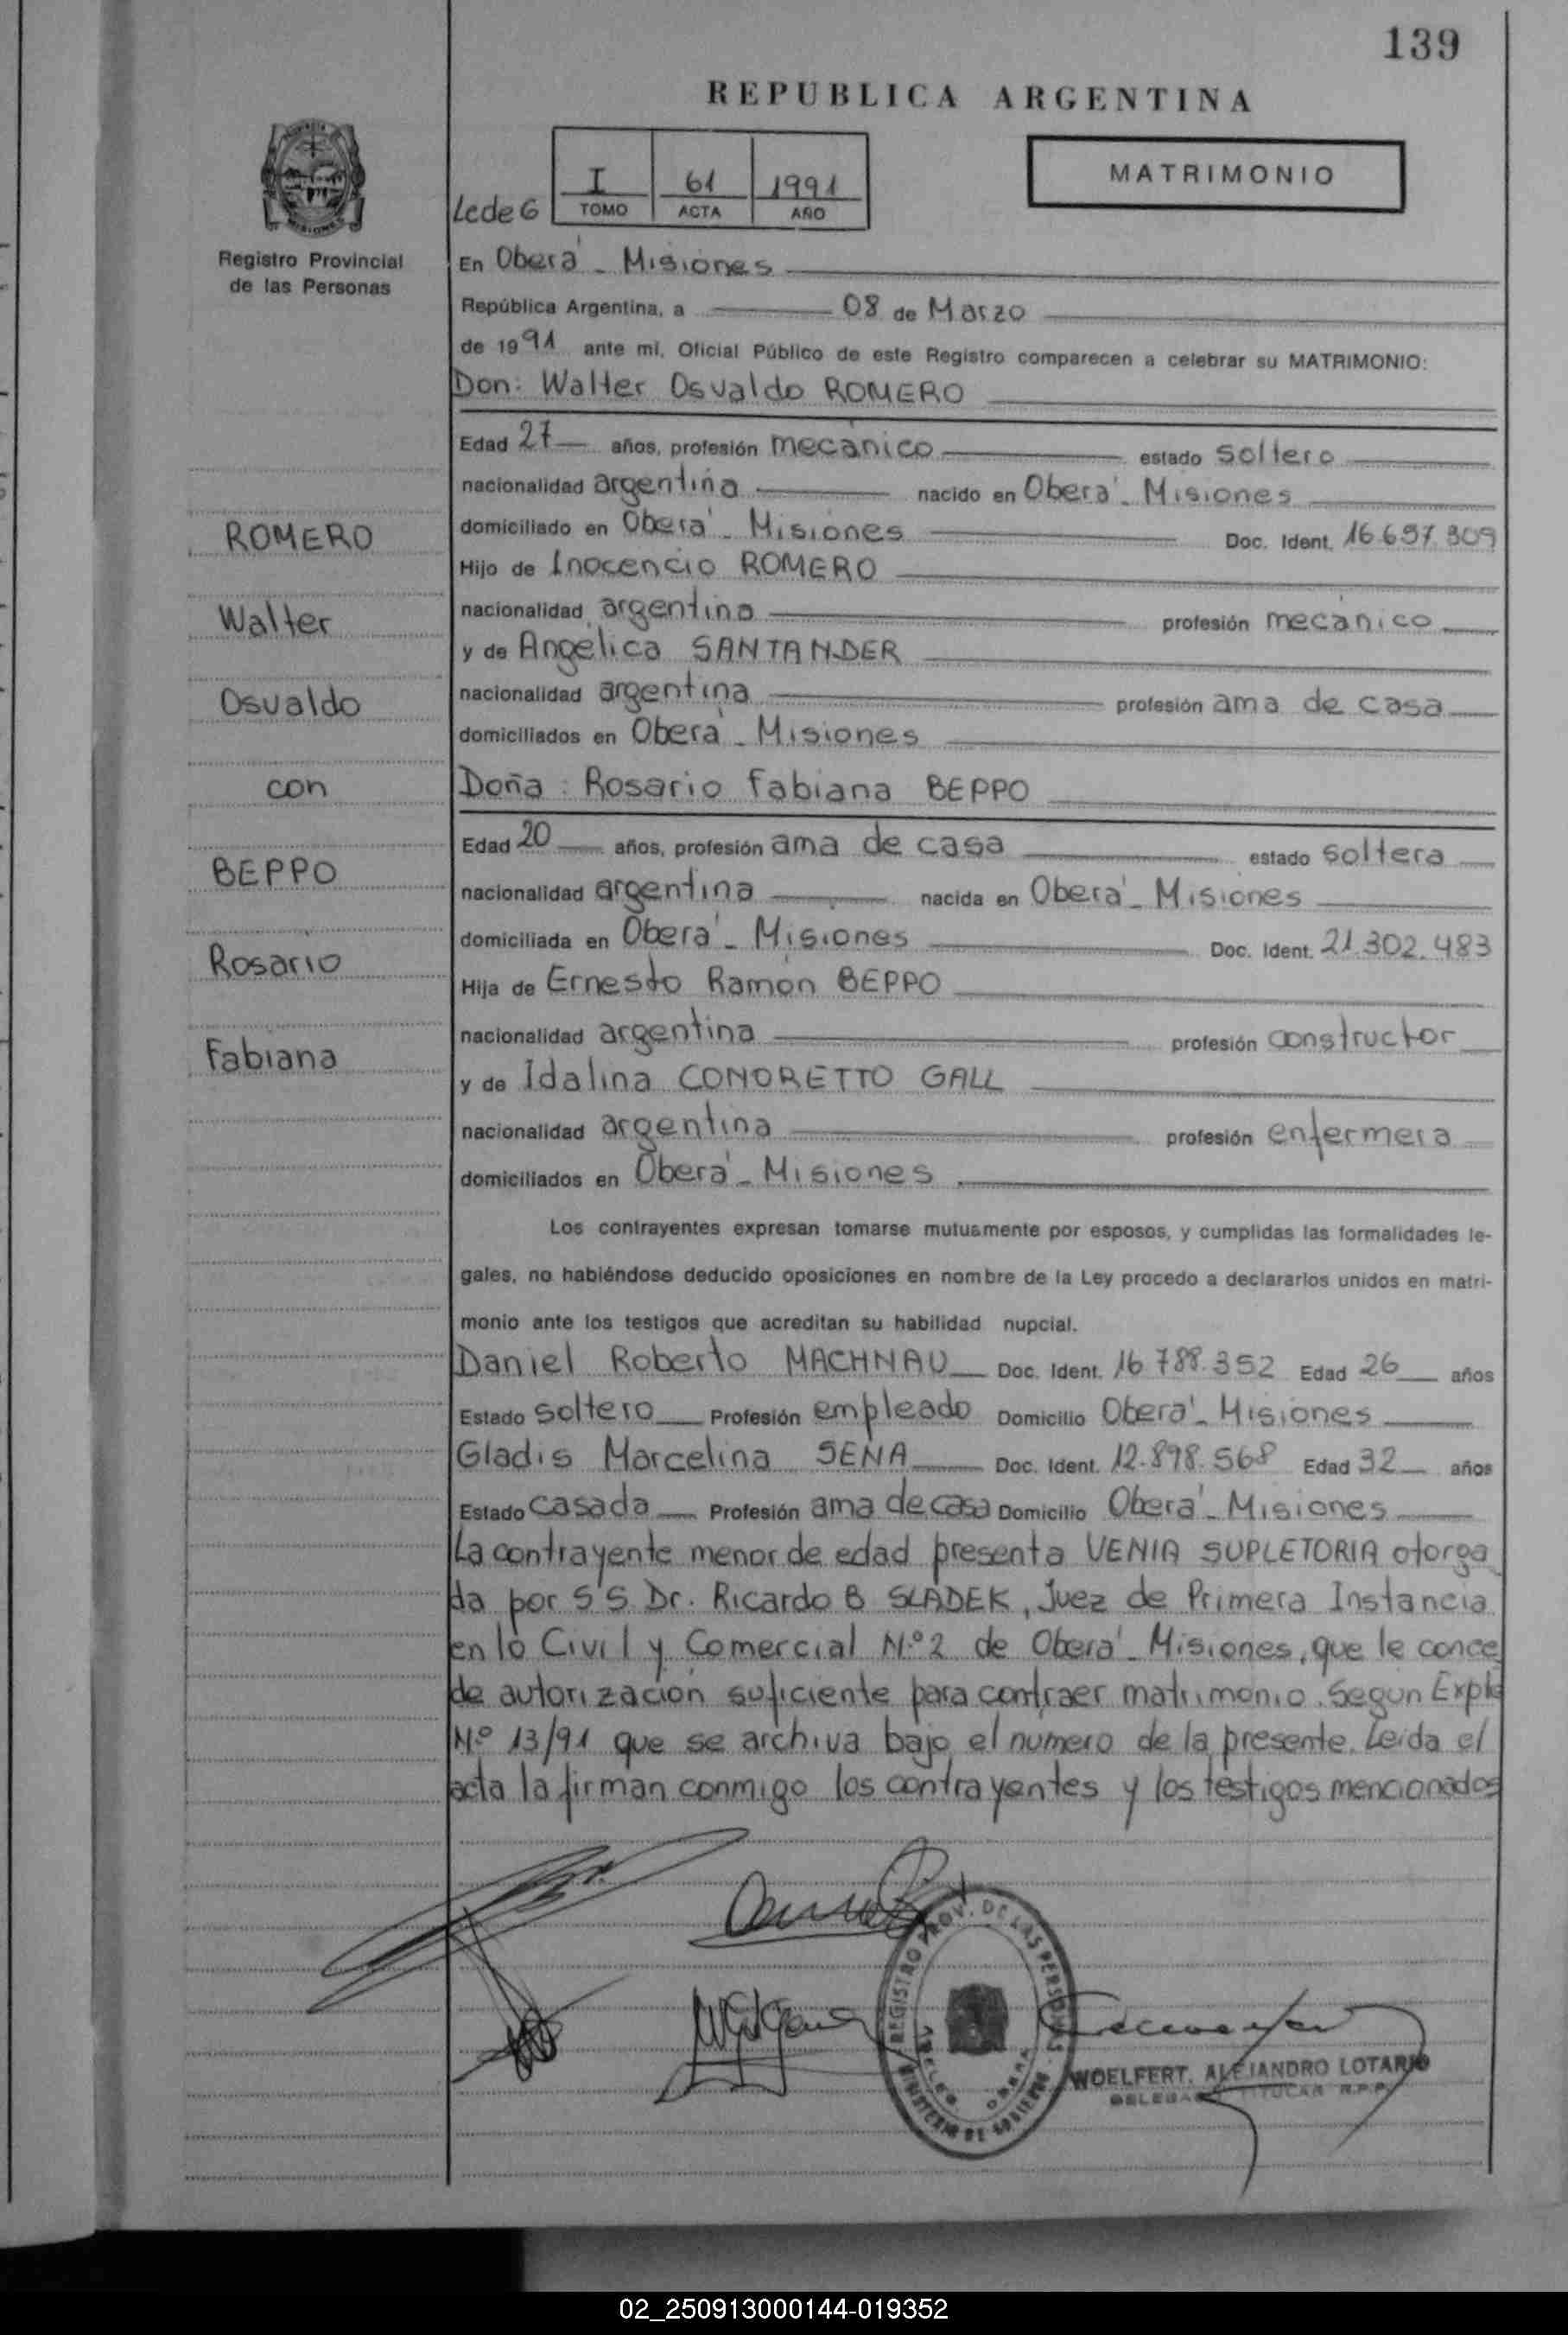 139
REPUBLICA ARGENTINA
MATRIMONIO
I 61 1991
Lede G TOMO ACTA AÑO
Registro Provincial
de las Personas
En Oberá - Misiones
República Argentina, a 08 de Marzo
de 1991 ante mi, Oficial Público de este Registro comparecen a celebrar su MATRIMONIO:
Don: Walter Osvaldo ROMERO
Edad 27 años, profesión mecánico estado soltero
nacionalidad argentina nacido en Oberá - Misiones
domiciliado en Oberá - Misiones Doc. Ident. 16.697.309
Hijo de Inocencio ROMERO
nacionalidad argentina profesión mecánico
y de Angélica SANTANDER
nacionalidad argentina profesión ama de casa
domiciliados en Oberá - Misiones
Doña: Rosario Fabiana BEPPO
Edad 20 años, profesión ama de casa estado soltera
nacionalidad argentina nacida en Oberá - Misiones
domiciliada en Oberá - Misiones Doc. Ident. 21.302.483
Hija de Ernesto Ramón BEPPO
nacionalidad argentina profesión constructor
y de Idalina CONORETTO GALL
nacionalidad argentina profesión enfermera
domiciliados en Oberá - Misiones
ROMERO
Walter
Osvaldo
con
BEPPO
Rosario
Fabiana
Los contrayentes expresan tomarse mutuamente por esposos, y cumplidas las formalidades le-
gales, no habiéndose deducido oposiciones en nombre de la Ley procedo a declararlos unidos en matri-
monio ante los testigos que acreditan su habilidad nupcial.
Daniel Roberto MACHNAU Doc. Ident. 16.788.352 Edad 26 años
Estado soltero Profesión empleado Domicilio Oberá - Misiones
Gladis Marcelina SENA Doc. Ident. 12.898.568 Edad 32 años
Estado casada Profesión ama de casa Domicilio Oberá - Misiones
La contrayente menor de edad presenta VENIA SUPLETORIA otorga
da por S S Dr. Ricardo B SLADEK, Juez de Primera Instancia
en lo Civil y Comercial N.º 2 de Oberá - Misiones, que le conce
de autorización suficiente para contraer matrimonio. Segun Expte
Nº 13/91 que se archiva bajo el numero de la presente. Leida el
acta la firman conmigo los contrayentes y los testigos mencionados
REGISTRO PROV. DE LAS PERSONAS
MINISTERIO DE GOBIERNO
WOELFERT, ALEJANDRO LOTARIO
02_250913000144-019352